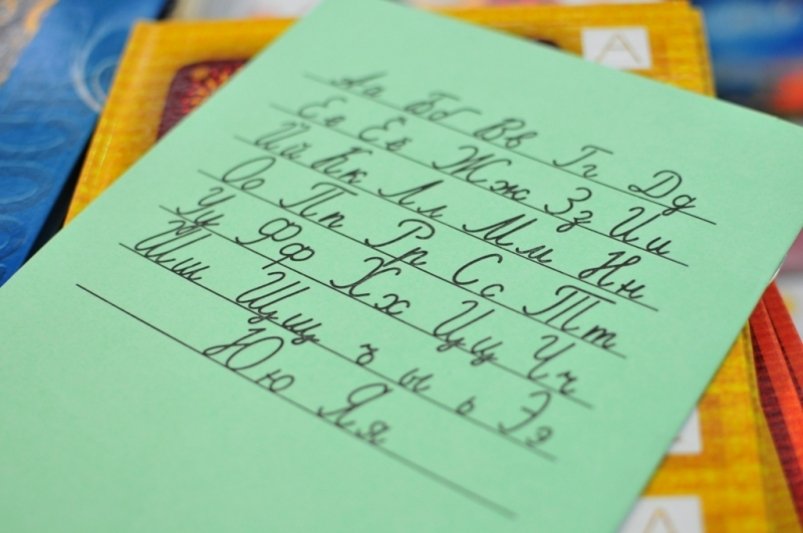 А
Аа Бб Вв Гг Дд
Ее Ёё Жж Зз Ии
Йй Кк Лл Мм Нн
Оо Пп Рр Сс Тт
Уу Фф Хх Цц Чч
Шш Щщ ъ ы ь Ээ
Юю Яя